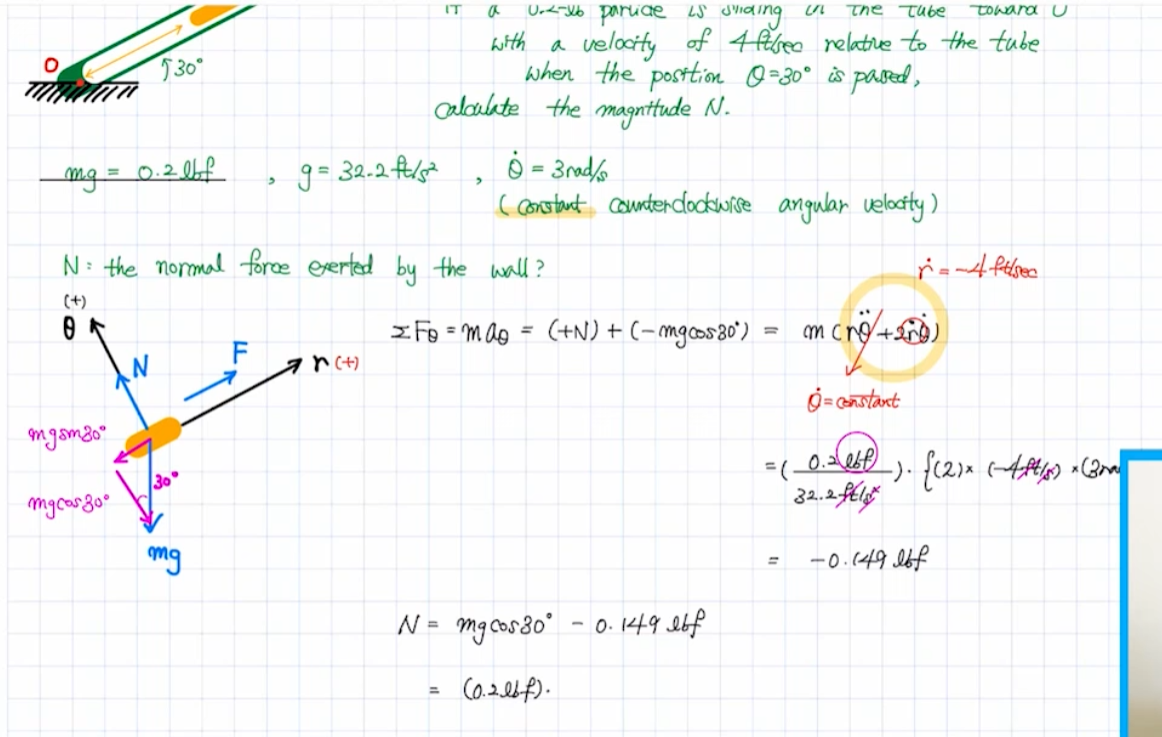 If a 0.2-lb particle is sliding in the tube toward O
with a velocity of 4 ft/sec relative to the tube
when the position θ=30° is passed,
calculate the magnitude N.
O
30°
mg = 0.2 lbf , g = 32.2 ft/s² , θ̇ = 3 rad/s
(constant counterclockwise angular velocity)
N: the normal force exerted by the wall?
ṙ = -4 ft/sec
(+)
θ
N
F
r (+)
ΣFθ = maθ = (+N) + (-mgcos30°) = m(rθ̈ + 2ṙθ̇)
θ̇ = constant
mgsin30°
mgcos30°
30°
mg
= (0.2 lbf / 32.2 ft/s²) · {(2) × (-4 ft/s) × (3
= -0.149 lbf
N = mgcos30° - 0.149 lbf
= (0.2 lbf).